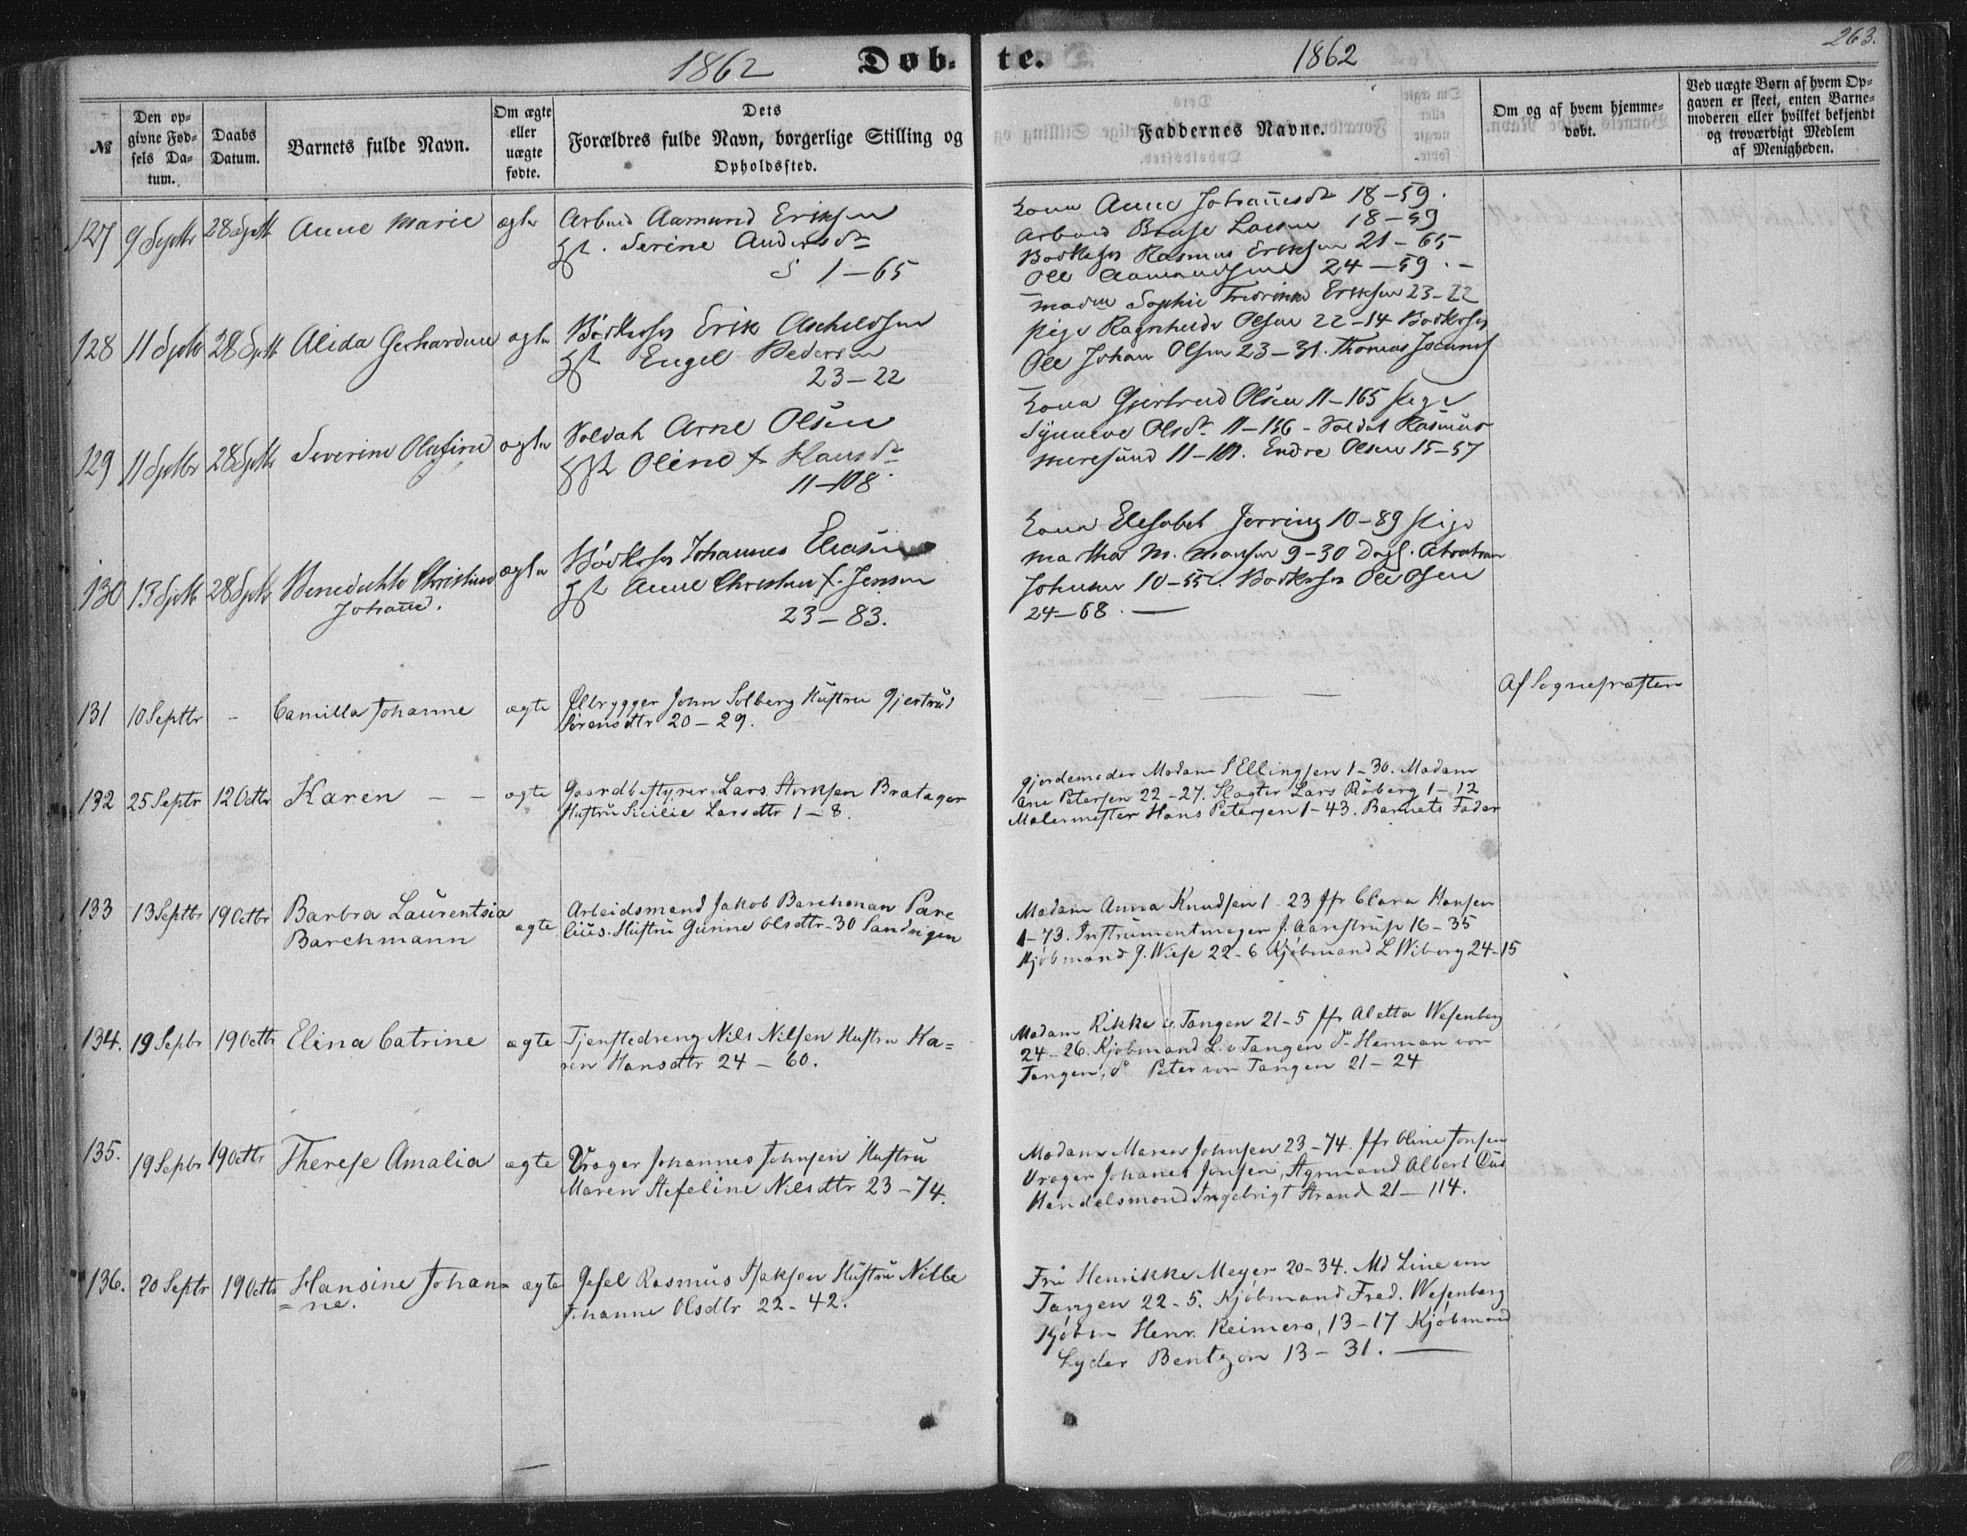 1862 Døbte. 1862 263.
№
Den opgivne Fødsels Datum.
Daabs Datum.
Barnets fulde Navn.
Om ægte eller uægte fødte.
Dets Forældres fulde Navn, borgerlige Stilling og Opholdssted.
Faddernes Navne.
Om og af hvem hjemmedøbt.
Ved uægte Børn af hvem Opgaven er skeet, enten Barnemoderen eller hvilket bekjendt og troværdigt Medlem af Menigheden.
127 9 Septbr 28 Septb Anne Marie ægte
Arbeid Aamund Eriksen
Hst. Serine Andersdr
S 1-65
Kona Anne Johannesdr 18-59.
Arbeid Larsen 18-59
Rasmus Eriksen 21-65
Ole Aamundsen 24-59.-
128 11 Septb 28 Septb Alida Gerhardine ægte
Bødkersv Erik
Hst Engel Pedersen
23-22
Madm Sophie Fredrikke Eriksen 23-22
Pige Ragnhilde Olsen 22-14 Bødkersv
Ole Johan Olsen 23-31. Thomas
129 11 Septbr 28 Septb Severine Olufine ægte
Soldat Arne Olsen
Hst Oline f. Hansdr
11-108
Kona Gjertrud Olsen 11-165 Pige
Synneve Olsdr 11-156 - Soldat Rasmus
11-101. Endre Olsen 15-57
130 13 Septb 28 Septb Benedichte Christine
Johanne. ægte
Bødkersv Johannes Eliasen
Hst Anne Christine f. Jensen
23-83.
Kona Elesabet Jerring 10-89 Pige
Martha M. Monsen 9-30 Dagl. Abraham
Johnsen 10-55. Bødkersv Ole Olsen
24-68.-
131 10 Septbr - Camilla Johanne ægte
Ølbrygger John Solberg Hustru Gjertrud
Sørensdtr 20-29.
Af Sognepræsten
132 25 Septr 12 Octbr Karen - - ægte
Gaardbestyrer Lars Storksen Bratager
Hustru Sicilie Larsdtr 1-8.
Gjordemoder Madam S Ellingsen 1-30. Madam
Ane Petersen 22-27. Slagter Lars Røberg 1-12
Malermester Hans Petersen 1-43. Barnets Fader
133 13 Septbr 19 Octbr Barbra Laurentsia
Barchmann ægte
Arbeidsmand Jakob Barchman Pare
lius. Hustru Gurine Olsdtr-30 Sandvigen
Madam Anna Knudsen 1-23 Jfr Clara Hansen
1-73. Instrumentmager J. Aarestrup 16-35
Kjøbmand J. Wiese 22-6 Kjøbmand L Wiborg 24-15
134. 19 Septr 19 Octbr Elina Catrine ægte
Tjenstedreng Nils Nilsen Hustru Ka=
ren Hansdtr 24-60.
Madam Rikke v. Tangen 21-5 Jfr Aletta Wesenberg
24-26. Kjøbmand L. v Tangen do Herman von
Tangen, do Peter von Tangen 21-24
135. 19 Septbr 19 Octbr Therese Amalia ægte
Vrager Johannes Johnsen Hustru
Maren Stefeline Nilsdtr 23-74.
Madam Maren Johnsen 23-74. Jfr Oline Jonsen
Vrager Johanes Jonsen, Styrmand Albert
Handelsmand Ingebrigt Strand 21-114.
136. 20 Septr 19 Octbr Hansine Johan=
=ne. ægte
Gesel Rasmus Isaksen Hustru Nille
Johanne Olsdtr 22-42.
Fru Henrikke Meyer 20-34. Md Line von
Tangen 22-5. Kjøbmand Fred. Wesenberg
Kjøbm Henr. Reimers, 13-17 Kjøbmand
Lyder Bentzon 13-31.-